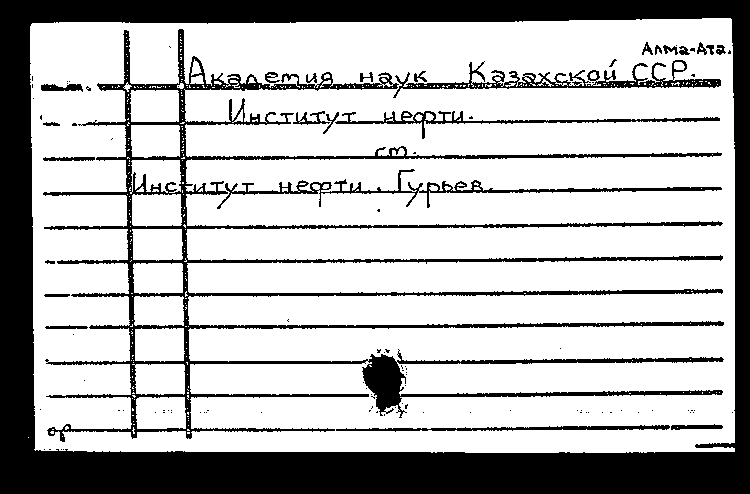 Алма-Ата.
Академия наук Казахской ССР.
Институт нефти.
см.
Институт нефти. Гурьев.
ор